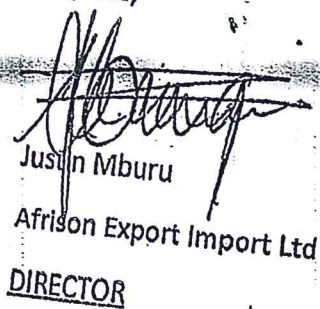 Justin Mburu
Afrison Export Import Ltd
DIRECTOR